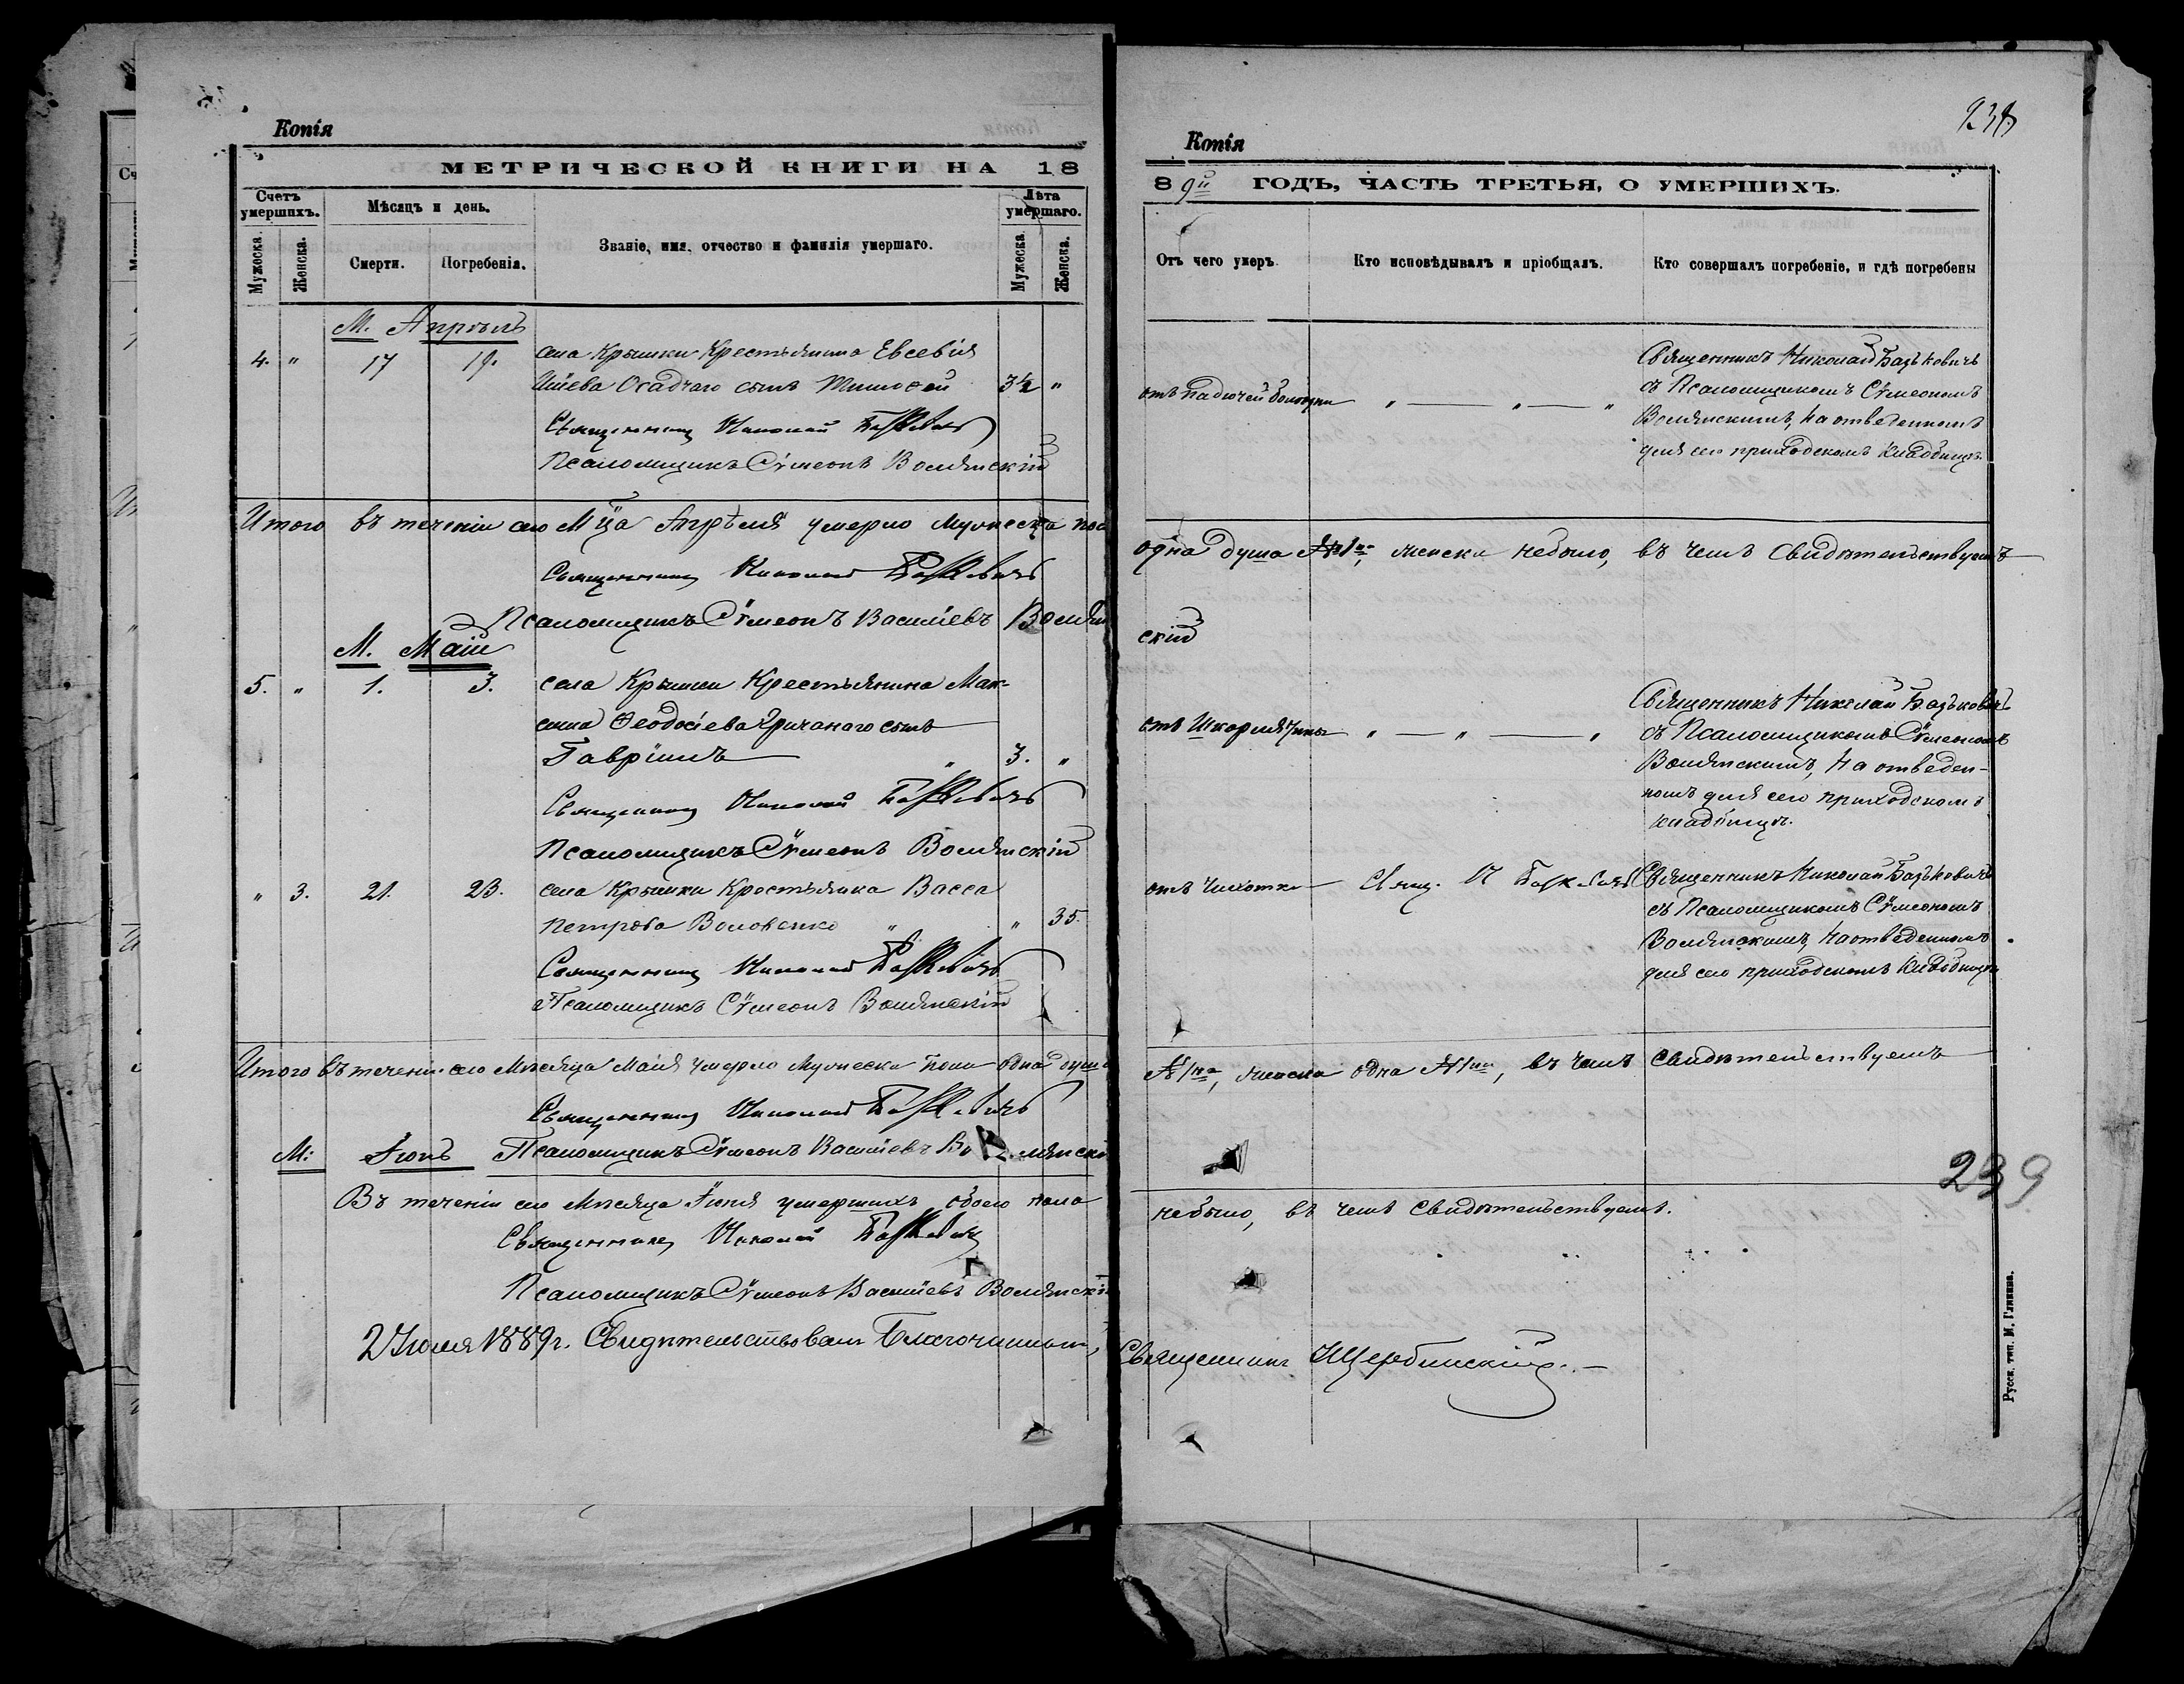 Копія
МЕТРИЧЕСКОЙ КНИГИ НА 18
Счетъ умершихъ.
Мѣсяцъ и день.
Званіе, имя, отчество и фамилія умершаго.
Лѣта умершаго.
Мужеска.
Женска.
Смерти.
Погребенія.
Мужеска
Женска.
М. Апрѣль
4. " 17 19. села Крымки Крестьянина Евсевія
Осадчаго сынъ Тимофей 3½ "
Священникъ Николай Базькевичъ
Псаломщикъ Сѵмеонъ Волянскій
Итого въ теченіи сего М-ца Апрѣля умерло Мужеска пола
Священникъ Николай Базькевичъ
Псаломщикъ Сѵмеонъ Васильевъ Волян
М. Маій
5. " 1. 3. села Крымки Крестьянина Мак-
сима Ѳеодосіева сынъ
Гавріилъ " 3. "
Священникъ Николай Базькевичъ
Псаломщикъ Сѵмеонъ Волянскій
" 3. 21. 23. села Крымки Крестьянка Васса
Петрова Воловенко " " 35.
Священникъ Николай Базькевичъ
Псаломщикъ Сѵмеонъ Волянскій
Итого въ теченіи сего Мѣсяца Маія умерло Мужеска пола одна душа
Священникъ Николай Базькевичъ
М: Іюнь Псаломщикъ Сѵмеонъ Васильевъ Волянскій
Въ теченіи сего Мѣсяца Іюня умершихъ обоего пола
Священникъ Николай Базькевичъ
Псаломщикъ Сѵмеонъ Васильевъ Волянскій
2 Іюля 1889 г. Свидѣтельствовалъ Благочинный,
238
Копія
89й ГОДЪ, ЧАСТЬ ТРЕТЬЯ, О УМЕРШИХЪ.
Отъ чего умеръ.
Кто исповѣдывалъ и пріобщалъ.
Кто совершалъ погребеніе, и гдѣ погребены
отъ падючей болѣзни " — " — "
Священникъ Николай Базьковичъ
съ Псаломщикомъ Сѵмеономъ
Волянскимъ, на отведенномъ
для сего приходскомъ кладбищѣ.
одна душа №1й, женска небыло, въ чемъ Свидѣтельствуемъ
скій
отъ " — " — "
Священникъ Николай Базьковичъ
съ Псаломщикомъ Сѵмеономъ
Волянскимъ, на отведен-
номъ для сего приходскомъ
кладбищѣ.
отъ чихотки Свящ. Н Базькевичъ
Священникъ Николай Базьковичъ
съ Псаломщикомъ Сѵмеономъ
Волянскимъ, на отведенномъ
для сего приходскомъ кладбищѣ
№1на, женска одна №1на, въ чемъ свидѣтельствуемъ
239
небыло, въ чемъ Свидѣтельствуемъ.
Священникъ Щербинскій. —
Русск. тип. М. Глинна.